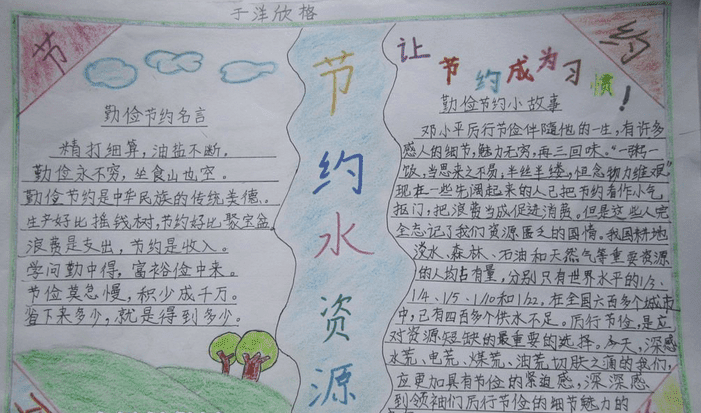 于洋欣格
节
约
节
约
水
资
源
勤俭节约名言
精打细算，油盐不断，
勤俭永不穷，坐食山也空。
勤俭节约是中华民族的传统美德。
生产好比摇钱树，节约好比聚宝盆
浪费是支出，节约是收入。
学问勤中得，富裕俭中来。
节俭莫怠慢，积少成千万。
留下来多少，就是得到多少。
让节约成为习惯！
勤俭节约小故事
邓小平厉行节俭伴随他的一生，有许多
感人的细节，魅力无穷，再三回味。“一粥一
饭，当思来之不易，半丝半缕，恒念物力维艰”
现在一些先阔起来的人已把节约看作小气，
抠门，把浪费当成促进消费。但是这些人完
全忘记了我们资源匮乏的国情。我国耕地
淡水、森林、石油和天然气等重要资源
的人均占有量，分别只有世界水平的1/3、
1/4、1/5、1/10和1/22，在全国六百多个城市
中，已有四百多个供水不足。厉行节俭，是应
对资源短缺的最重要的选择。今天，深感
水荒、电荒、煤荒、油荒切肤之痛的我们，
应更加具有节俭的紧迫感，深深感
到领袖们厉行节俭的细节魅力的